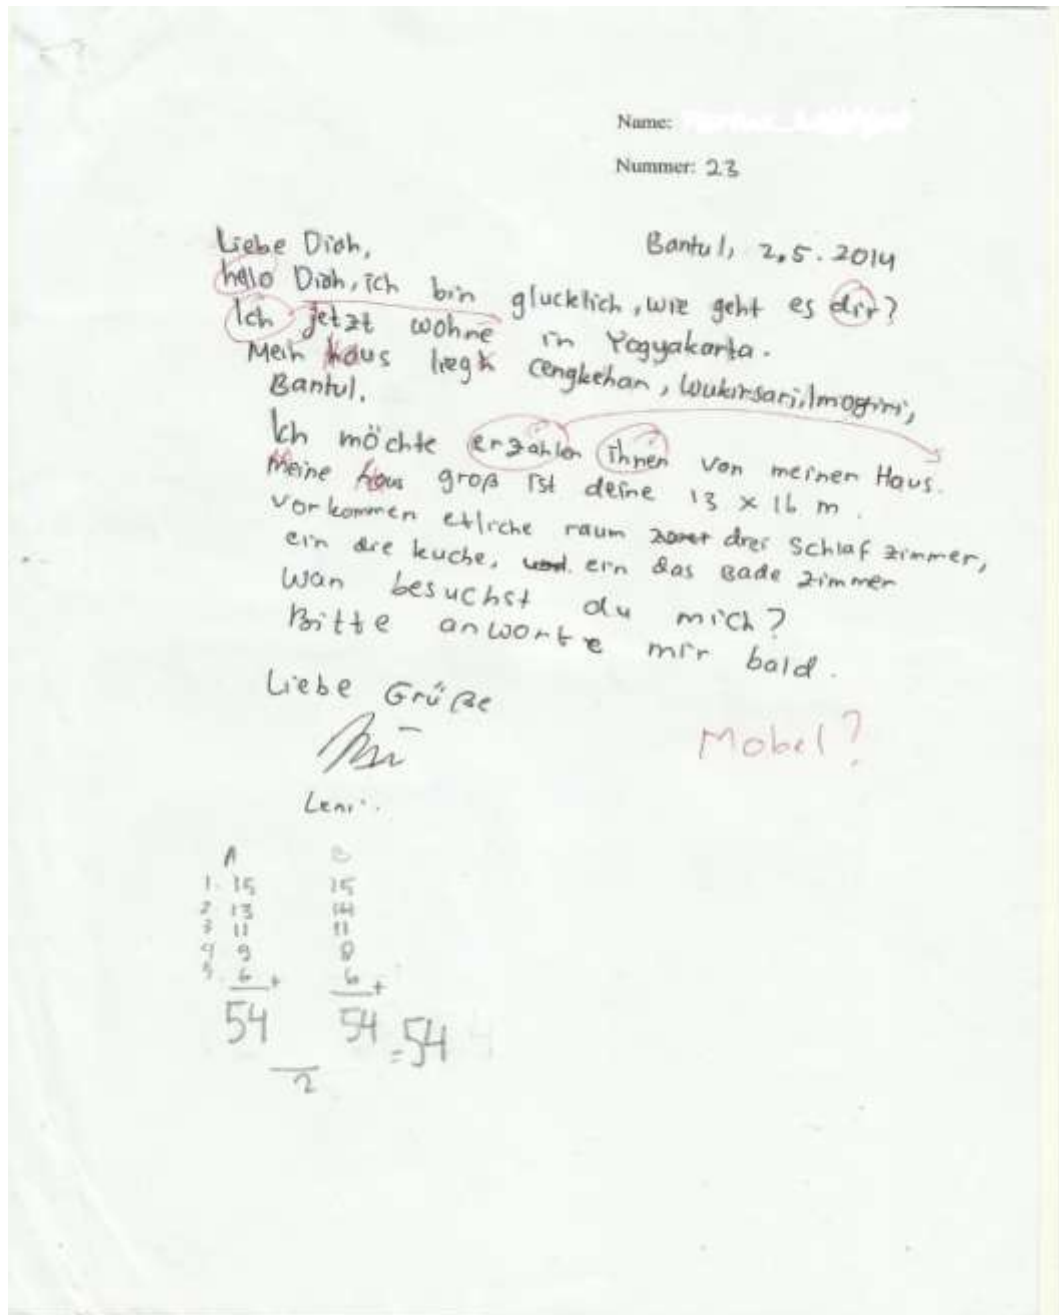 Name:
Nummer: 23
Liebe Diah,
Bantul, 2.5.2014
hello Diah, ich bin glucklich, wie geht es dir?
Ich jetzt wohne in Yogyakarta.
Mein haus liegt Cengkehan, Wukirsari, Imogiri,
Bantul.
Ich möchte erzahlen ihnen von meinen Haus.
Meine haus groß ist deine 13 x 16 m.
Vorkommen etliche raum drei Schlaf zimmer,
ein die kuche, und ein das Bade zimmer
Wan besuchst du mich?
Bitte anworte mir bald.
Liebe Grüße
Mobel?
Leni
A B
1. 15 15
2 13 14
3 11 11
4 9 8
5. 6 + 6 +
54 54 = 54
2